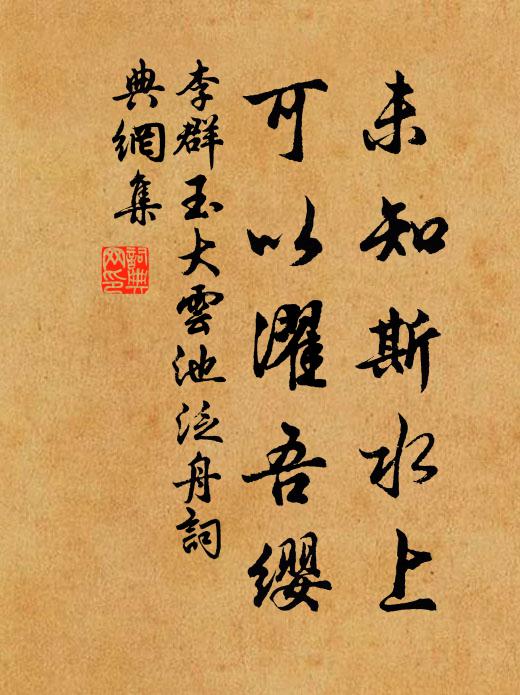 未知斯水上
可以濯吾缨
李群玉大雲池泛舟詞
典網集
詞典網印